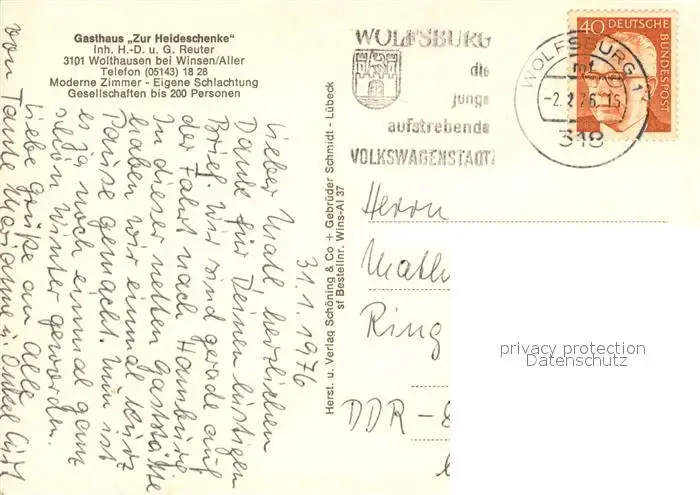 Gasthaus „Zur Heideschenke"
Inh. H.-D. u. G. Reuter
3101 Wolthausen bei Winsen/Aller
Telefon (05143) 18 28
Moderne Zimmer - Eigene Schlachtung
Gesellschaften bis 200 Personen
31.1.1976
Lieber herzlichen
Dank für Deinen lustigen
Brief. Wir sind gerade auf
der Fahrt nach Hamburg
In dieser netten Gaststätte
haben wir einmal kurz
Pause gemacht. Nun ist
es ja noch einmal ganz
schön Winter geworden.
Liebe Grüße an alle
von Tante Marianne u. Onkel
Herst. u. Verlag Schöning & Co + Gebrüder Schmidt - Lübeck
sf Bestellnr. Wins-Al 37
WOLFSBURG
die
junge
aufstrebende
VOLKSWAGENSTADT
WOLFSBURG 1
mf
-2.2.76.15
318
40 DEUTSCHE
BUNDESPOST
Herrn
Ring
DDR -
privacy protection
Datenschutz